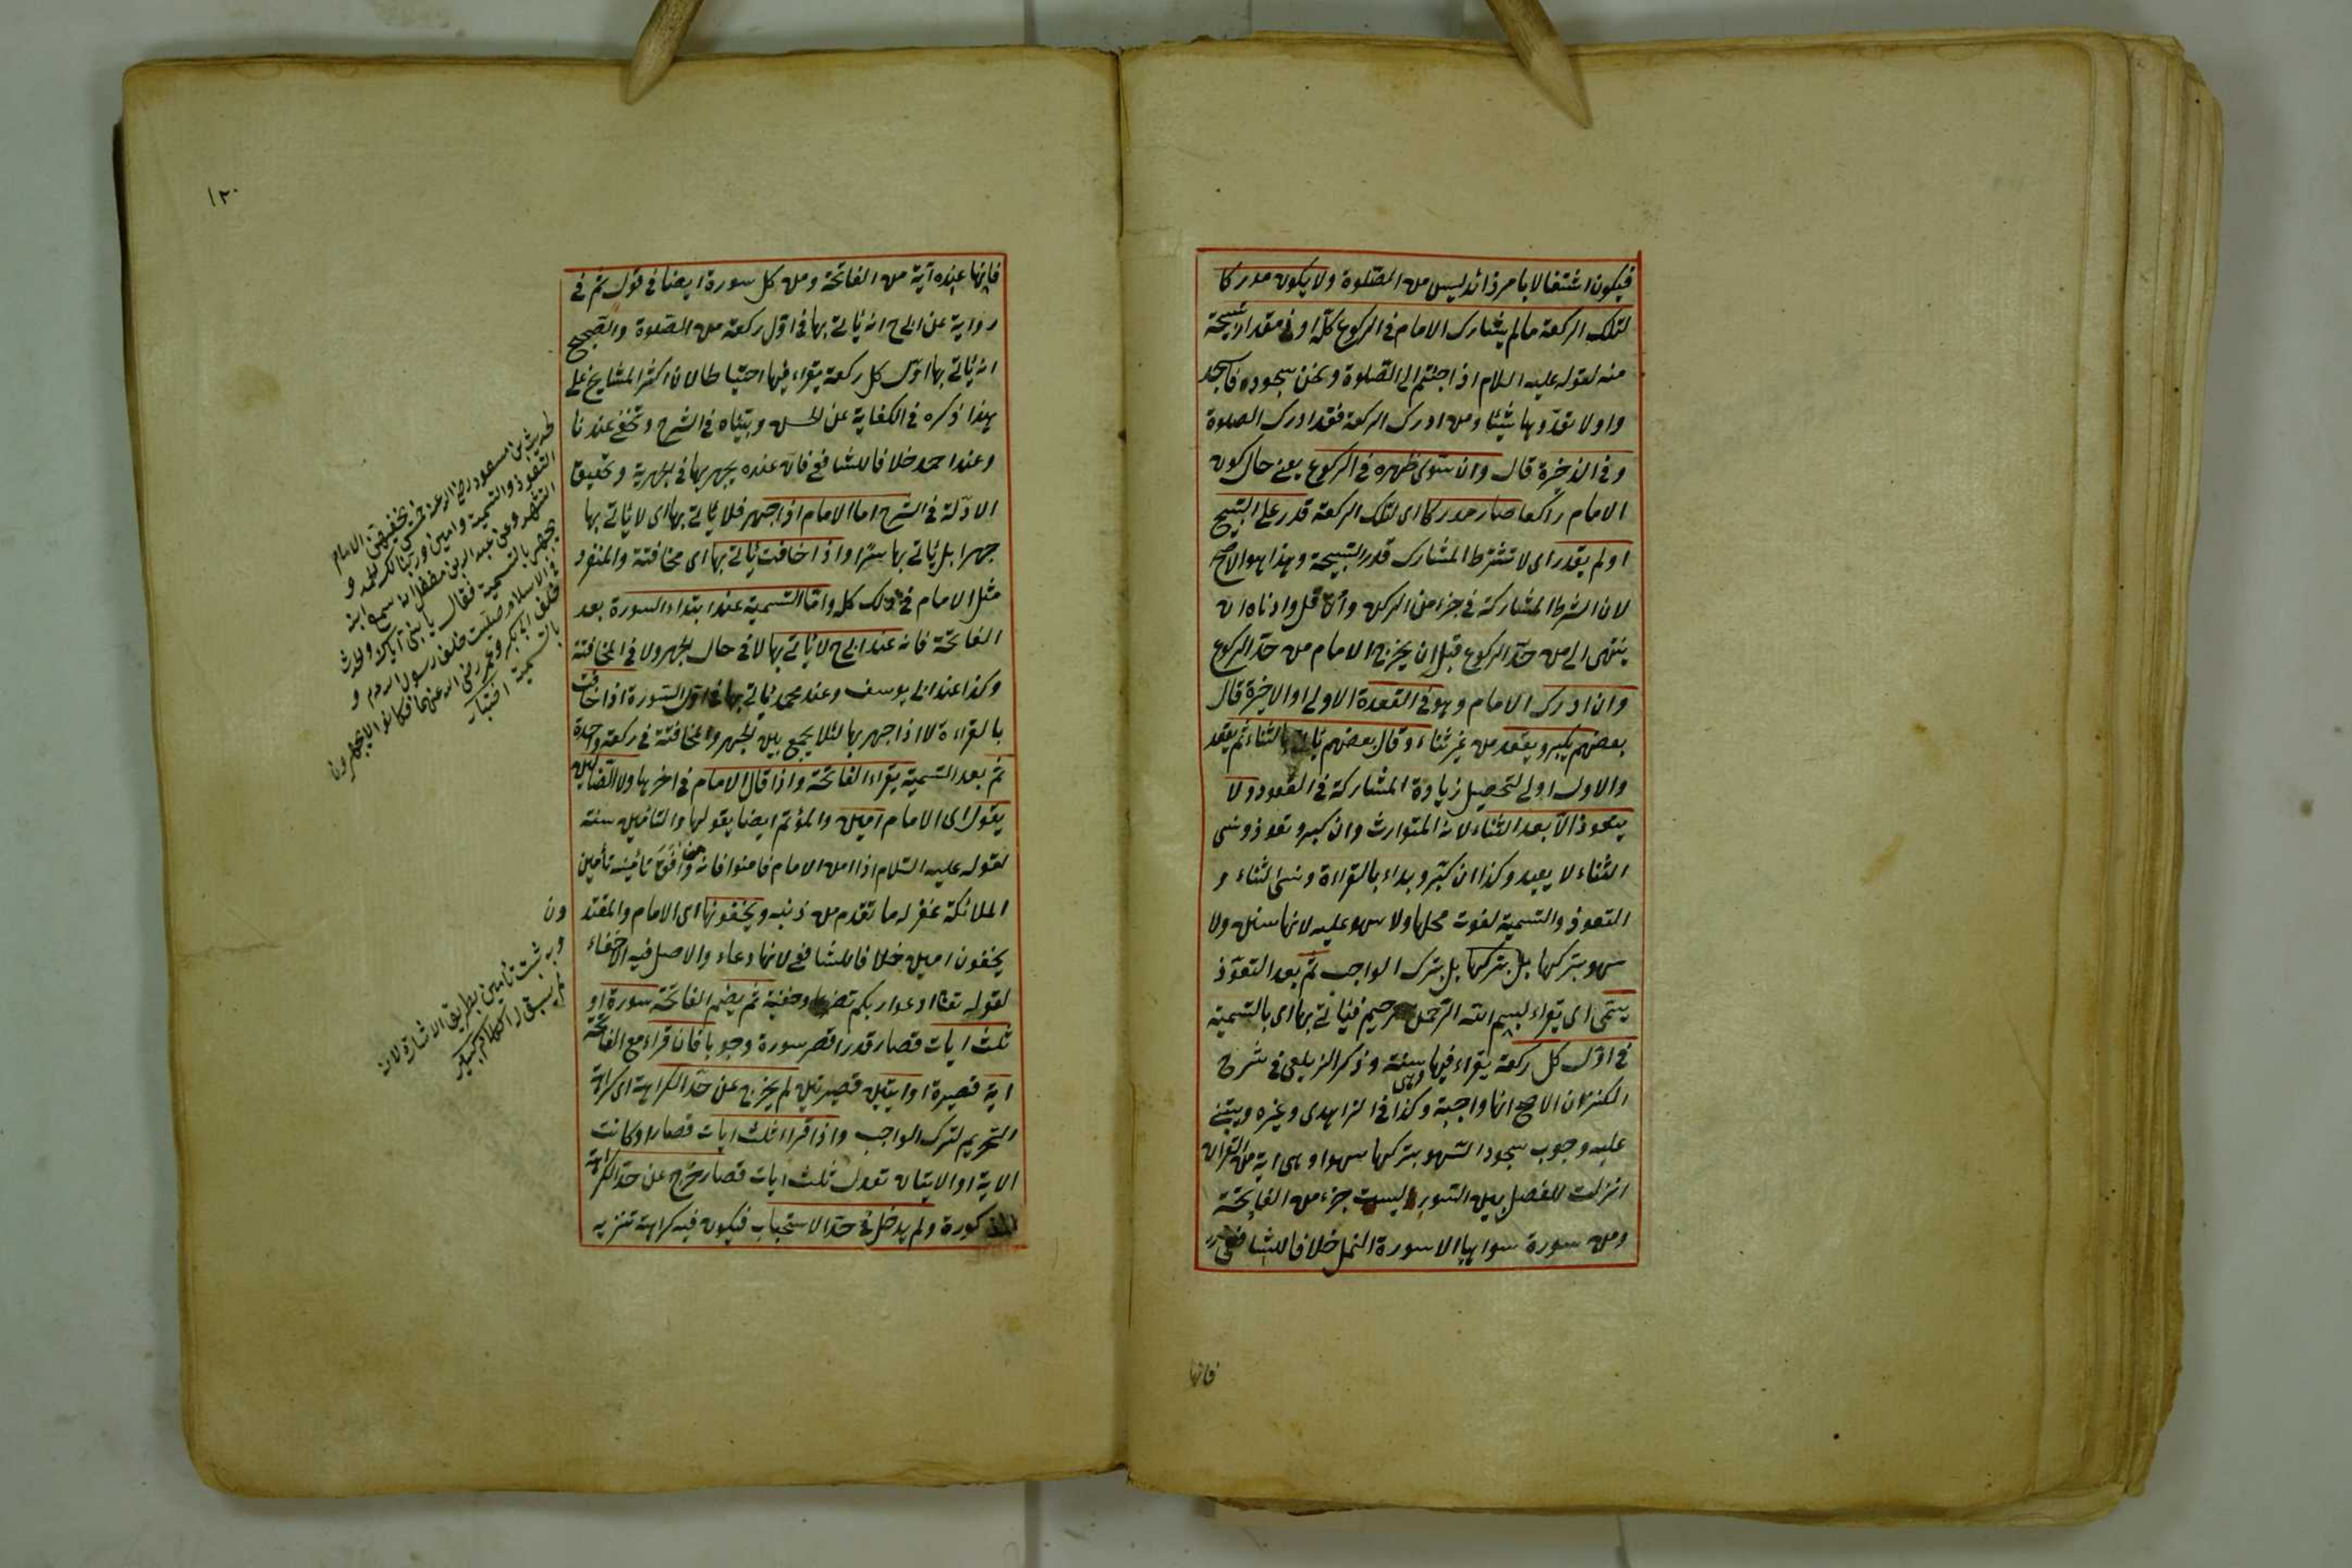 فيكون اشتغالا بامر زائد ليس من الصلوة ولا يكون مدركا
لتلك الركعة مالم يشارك الامام فى الركوع كله او فى مقدار تسبيحة
منه لقوله عليه السلام اذا جئتم الى الصلوة ونحن سجود فاسجد
وا ولا تعدّوها شيئا ومن ادرك الركعة فقد ادرك الصلوة
وفى الذخيرة قال وان سوى ظهره فى الركوع يعنى حال كون
الامام راكعا صار مدركا اى لتلك الركعة قدر على التسبيح
او لم يقدر اى لا تشترط المشاركة قدر التسبيحة وهذا هو الاصح
لان الشرط المشاركة فى جزء من الركن وان قل وادناه ان
ينتهى الى من حدّ الركوع قبل ان يخرج الامام من حدّ الركوع
وان ادرك الامام وهو فى القعدة الاولى او الاخيرة قال
بعضهم يكبر ويقعد من غير ثناء وقال بعضهم ياتى بالثناء ثم يقعد
والاول اولى لتحصيل زيادة المشاركة فى القعود ولا
يتعوذ الا بعد الثناء لانه المتوارث وان كبر وتعوذ ونسى
الثناء لا يعيد وكذا ان كبّر وبداء بالقراءة ونسى الثناء و
التعوذ والتسمية لفوت محلها ولا سهو عليه لانها سنن ولا
سهو بتركها بل بتركها بل بترك الواجب ثمّ بعد التعوّذ
يسمّى اى يقراء بسم الله الرّحمن الرحيم فياتى بها اى بالتسمية
فى اوّل كل ركعة يقراء فيها وهى سنة وذكر الزيلعى فى شرح
الكنز ان الاصح انها واجبة وكذا فى الزاهدى وغيره ويبتنى
عليه وجوب سجود السّهو بتركها سهوا وهى اية من القران
انزلت للفصل بين السّور ليست جزء من الفاتحة
ومن سورة سواها الا سورة النمل خلافا للشافعى
فانها
١٢٠
فانها عنده آية من الفاتحة ومن كل سورة ايضا فى قول ثم فى
رواية عن ابى ح انه ياتى بها فى اوّل ركعة من الصّلوة والصّحيح
انه ياتى بها اوّل كل ركعة يقراء فيها احتياطا لان اكثر المشايخ على
هذا ذكره فى الكفاية عن الحسن وبيّناه فى الشرح وتخفى عندنا
وعند احمد خلافا للشافعى فانّ عنده يجهر بها فى الجهرية وتحقيق
الادلّة فى الشرح اما الامام اذا جهر فلا ياتى بها اى لا ياتى بها
جهرا بل ياتى بها سرّا واذا خافت ياتى بها اى مخافتة والمنفرد
مثل الامام فى ذلك كله وامّا التسمية عند ابتداء السورة بعد
الفاتحة فانه عند ابى ح لا ياتى بها لا فى حال الجهر ولا فى المخافتة
وكذا عند ابى يوسف وعند محمد ياتى بها فى اول السّورة اذا خافت
بالقراءة لا اذا جهر بها لئلا يجمع بين الجهر والمخافتة فى ركعة واحدة
ثمّ بعد التسمية يقراء الفاتحة واذا قال الامام فى اخرها ولا الضّالين
يقول اى الامام آمين والمؤتم ايضا يقولها والتامين سنة
لقوله عليه السّلام اذا امن الامام فامنوا فانه من وافق تأمينه تأمين
الملائكة غفر له ما تقدم من ذنبه ويخفونها اى الامام والمقتدون
يخفون امين خلافا للشافعى لانها دعاء والاصل فيه الاخفاء
لقوله تعا ادعوا ربكم تضرعا وخفية ثم يضم الى الفاتحة سورة او
ثلث ايات قصار قدر اقصر سورة وجوبا فان قراء مع الفاتحة
اية قصيرة او ايتين قصيرتين لم يخرج عن حدّ الكراهة اى كراهة
التحريم لترك الواجب واذا قراء ثلث ايات قصار او كانت
الاية او الايتان تعدل ثلث ايات قصار خرج عن حدّ الكراهة
المذكورة ولم يدخل فى حدّ الاستحباب فيكون فيه كراهة تنزيه
لحديث ابن مسعود رضى الله عنه خمس يخفيهن الامام
التعوذ والتسمية وامين وربنا لك الحمد و
التشهد وعن عبد الله بن مغفل انه سمع ابنه
يجهر بالتسمية فقال يا بنى اياك والحدث
فى الاسلام صليت خلف رسول الله م و
خلف ابى بكر وعمر رضى الله عنهما فكانوا لا يجهرون
بالتسمية اختيار
وبه ثبت تأمين بطريق الاشارة لانه
لم يسبق له الكلام كبير